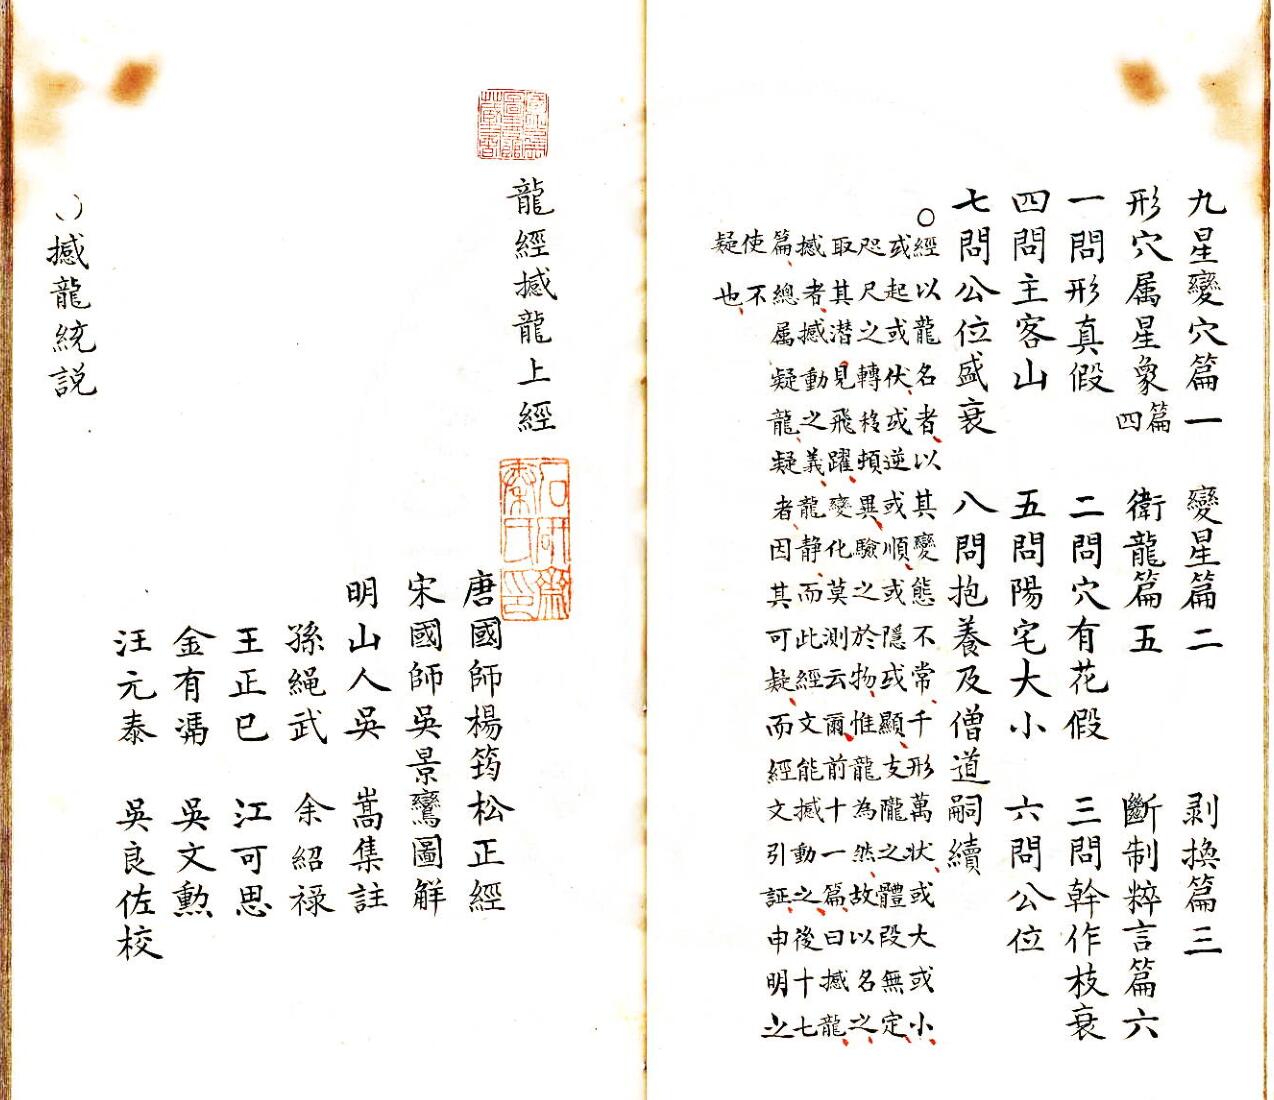 九星變穴篇一 變星篇二 剥換篇三
形穴属星象篇四 衛龍篇五 斷制粹言篇六
一問形真假 二問穴有花假 三問幹作枝衰
四問主客山 五問陽宅大小 六問公位
七問公位盛衰 八問抱養及僧道嗣續
○經以龍名者以其變態不常千形萬狀或大或小
或起或伏或逆或順或隱或顯支隴之體段無定
咫尺之轉移頓異驗之於物惟龍為然故以名之
取其潜見飛躍變化莫測云爾前十一篇曰撼龍
撼者撼動之義龍静而此經文能撼動之後十七
篇總属疑龍疑者因其可疑而經文引証申明之
使不
疑也
龍經撼龍上經
石研齋秦氏印
唐國師楊筠松正經
宋國師吳景鸞圖觧
明山人吳 嵩集註
孫繩武 余紹禄
王正已 江可思
金有 吳文勲
汪元泰 吳良佐校
○撼龍統説